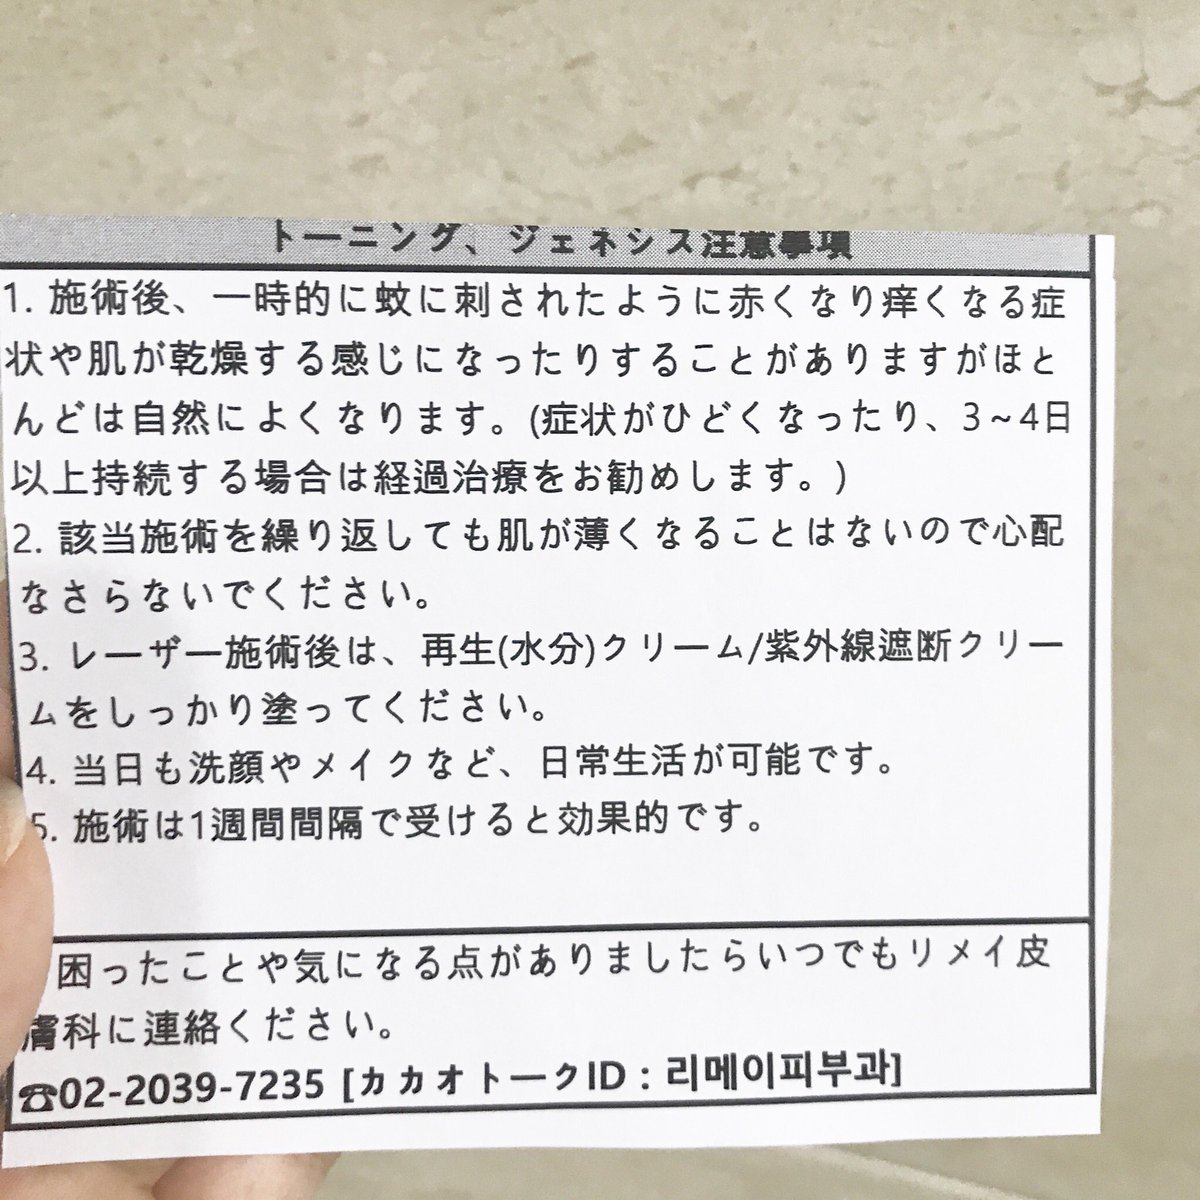 トーニング、ジェネシス注意事項
1. 施術後、一時的に蚊に刺されたように赤くなり痒くなる症
状や肌が乾燥する感じになったりすることがありますがほと
んどは自然によくなります。(症状がひどくなったり、3~4日
以上持続する場合は経過治療をお勧めします。)
2. 該当施術を繰り返しても肌が薄くなることはないので心配
なさらないでください。
3. レーザー施術後は、再生(水分)クリーム/紫外線遮断クリー
ムをしっかり塗ってください。
4. 当日も洗顔やメイクなど、日常生活が可能です。
5. 施術は1週間間隔で受けると効果的です。
困ったことや気になる点がありましたらいつでもリメイ皮
膚科に連絡ください。
☎02-2039-7235 [カカオトークID : 리메이피부과]